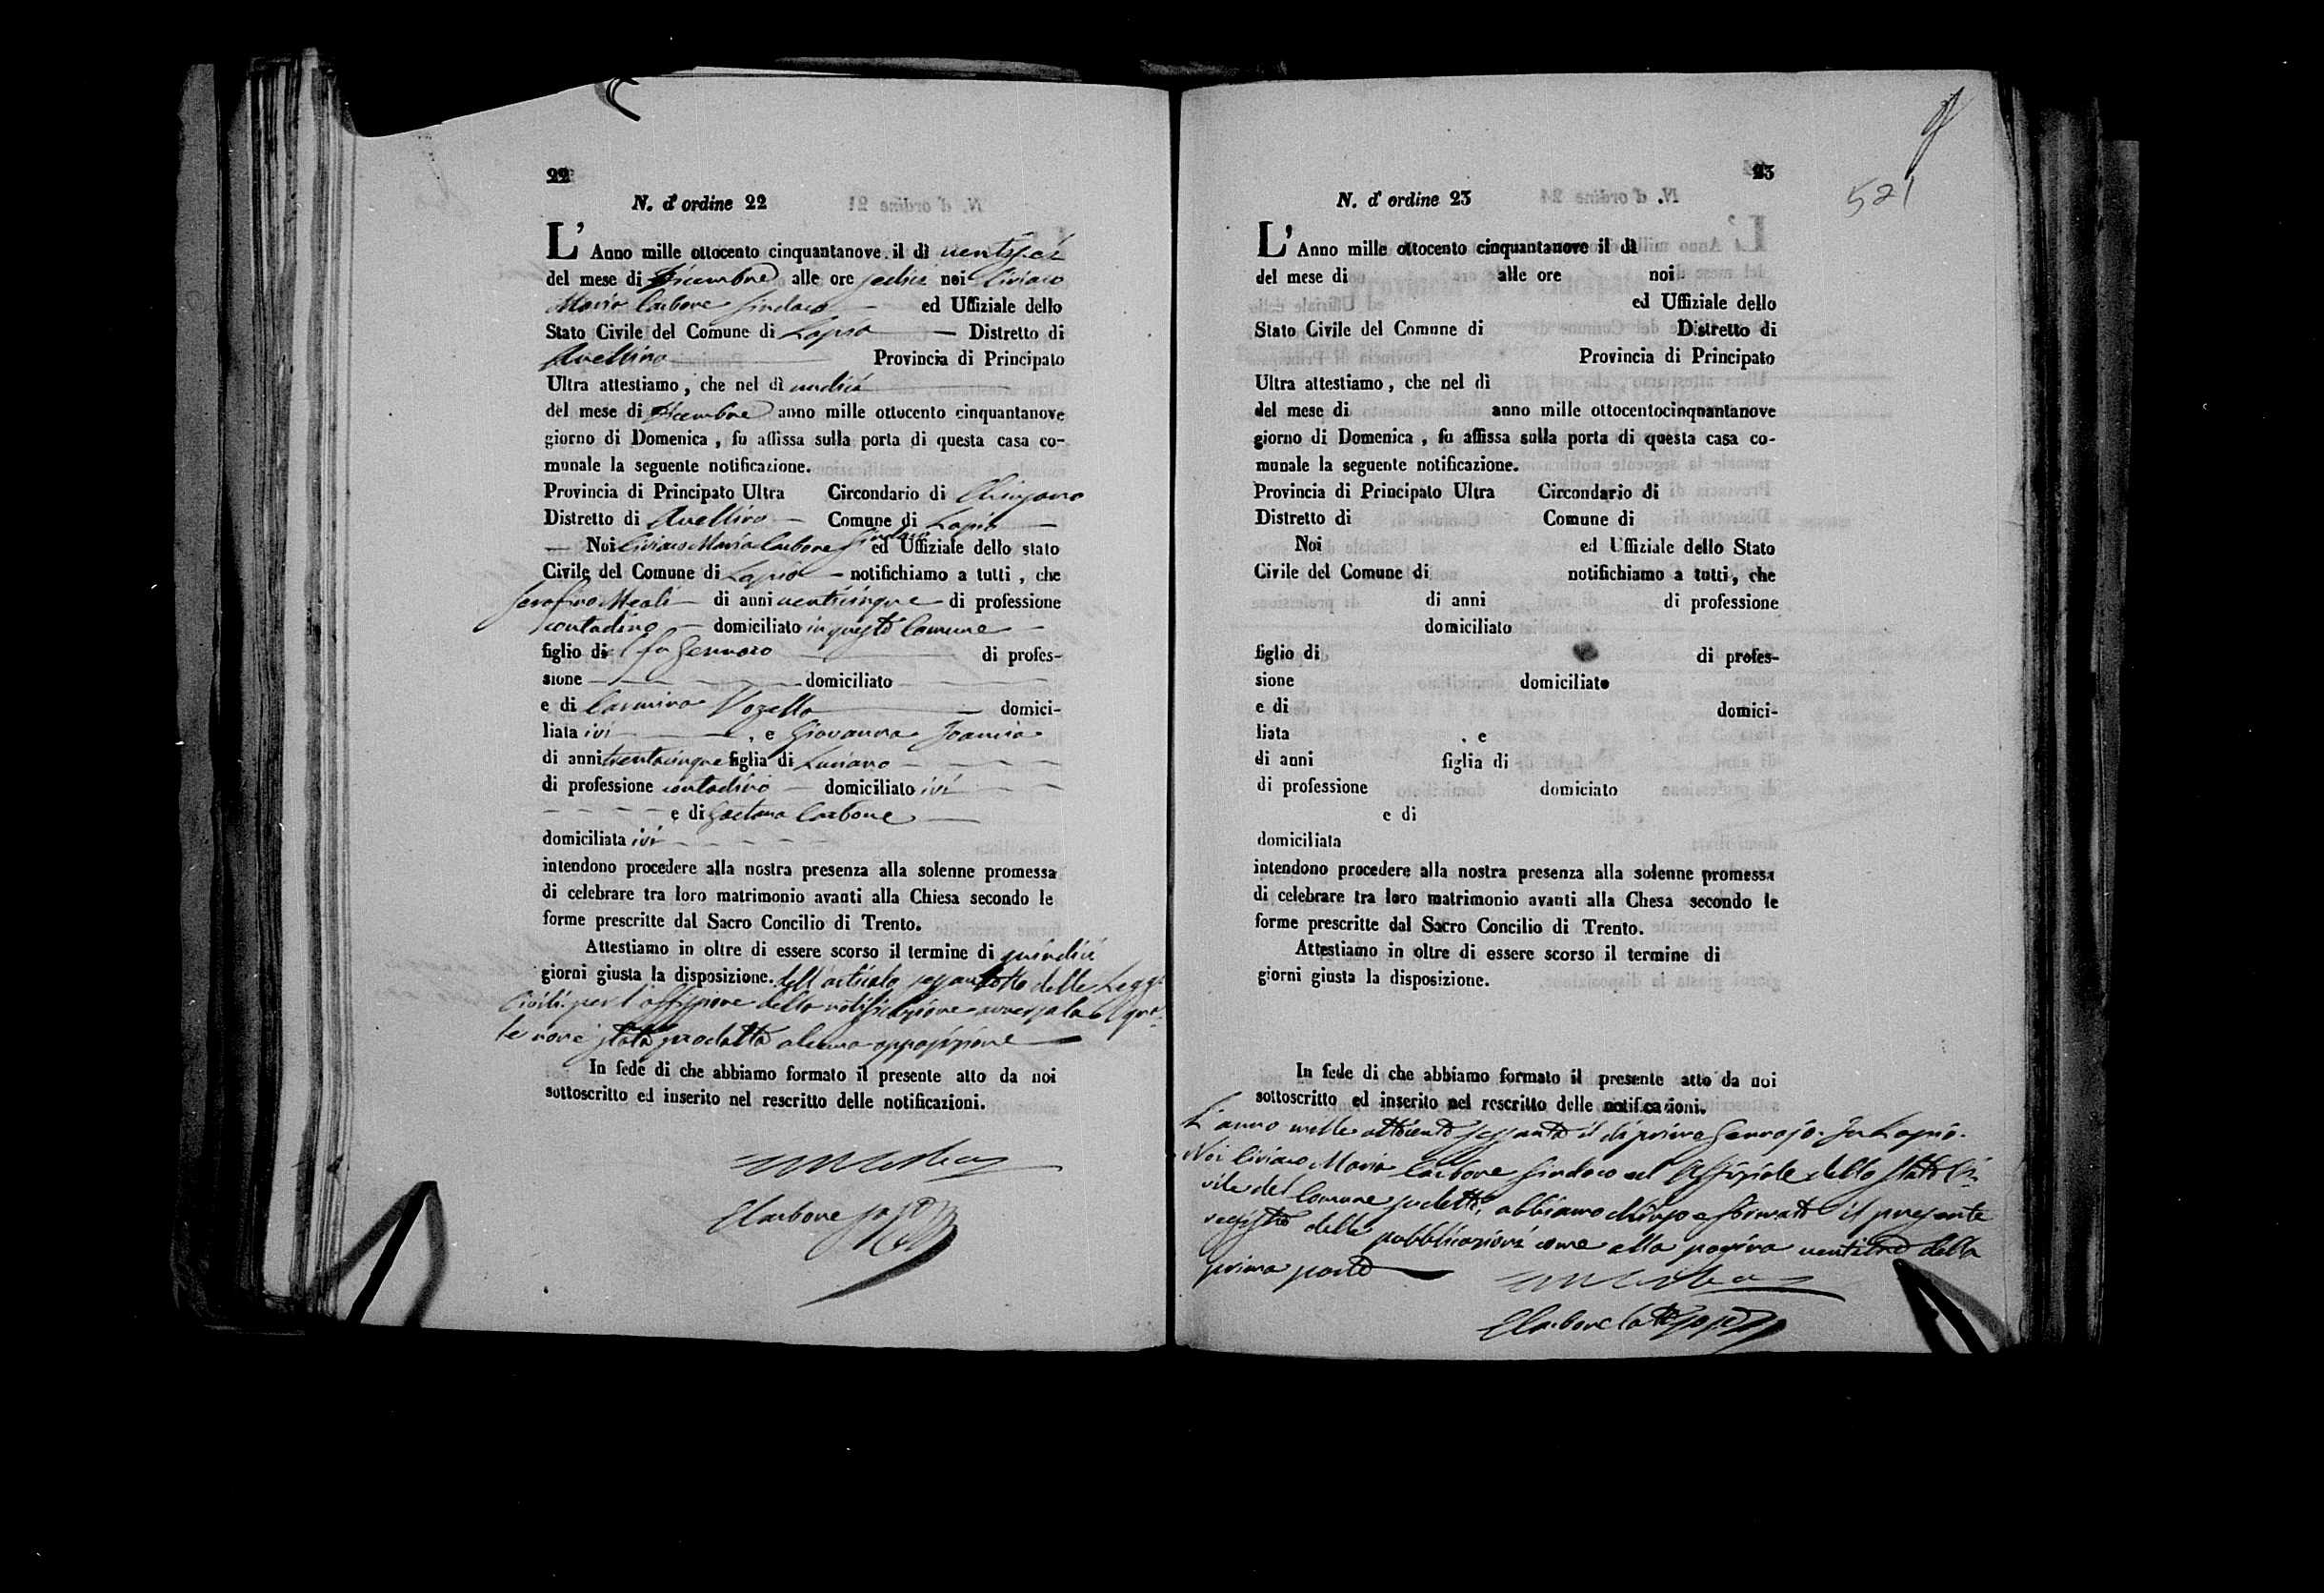 22
N. d'ordine 22
L' Anno mille ottocento cinquantanove. il dì ventisei
del mese di Dicembre alle ore sedici noi Ciriaco
Maria Carbone Sindaco ed Uffiziale dello
Stato Civile del Comune di Lapio — Distretto di
Avellino Provincia di Principato
Ultra attestiamo, che nel dì undici
del mese di Dicembre anno mille ottocento cinquantanove
giorno di Domenica, fu affissa sulla porta di questa casa co-
munale la seguente notificazione.
Provincia di Principato Ultra Circondario di Chiusano
Distretto di Avellino — Comune di Lapio —
— Noi Ciriaco Maria Carbone Sindaco ed Uffiziale dello stato
Civile del Comune di Lapio — notifichiamo a tutti, che
Serafino Meoli — di anni venticinque — di professione
contadino — domiciliato in questo Comune —
figlio di fu Gennaro di profes-
sione — domiciliato
e di Carmina Vozella — domici-
liata ivi —, e Giovanna
di anni trentacinque figlia di Luciano
di professione contadino — domiciliato ivi
e di Gaetana Carbone —
domiciliata ivi
intendono procedere alla nostra presenza alla solenne promessa
di celebrare tra loro matrimonio avanti alla Chiesa secondo le
forme prescritte dal Sacro Concilio di Trento.
Attestiamo in oltre di essere scorso il termine di quindici
giorni giusta la disposizione. dell'articolo sessantotto delle Leggi
Civili per l'affissione della notificazione
stata prodotta alcuna opposizione —
In fede di che abbiamo formato il presente atto da noi
sottoscritto ed inserito nel rescritto delle notificazioni.
CMCarbone
Carbone
23
521
N. d' ordine 23
L' Anno mille ottocento cinquantanove il dì
del mese di alle ore noi
ed Uffiziale dello
Stato Civile del Comune di Distretto di
Provincia di Principato
Ultra attestiamo, che nel dì
del mese di anno mille ottocentocinquantanove
giorno di Domenica, fu affissa sulla porta di questa casa co-
munale la seguente notificazione.
Provincia di Principato Ultra Circondario di
Distretto di Comune di
Noi ed Uffiziale dello Stato
Civile del Comune di notifichiamo a tutti, che
di anni di professione
domiciliato
figlio di di profes-
sione domiciliato
e di domici-
liata , e
di anni figlia di
di professione domiciato
e di
domiciliata
intendono procedere alla nostra presenza alla solenne promessa
di celebrare tra loro matrimonio avanti alla Chesa secondo le
forme prescritte dal Sacro Concilio di Trento.
Attestiamo in oltre di essere scorso il termine di
giorni giusta la disposizione.
In fede di che abbiamo formato il presente atto da noi
sottoscritto ed inserito nel rescritto delle notificazioni.
L'anno mille ottocento sessanta il dì primo Gennajo. In Lapio.
Noi Ciriaco Maria Carbone Sindaco ed Uffiziale dello stato Ci-
vile del Comune sudetto, abbiamo chiuso e firmato il presente
registro delle pubblicazioni come alla pagina ventitre della
prima parte —
CMCarbone
Carbone